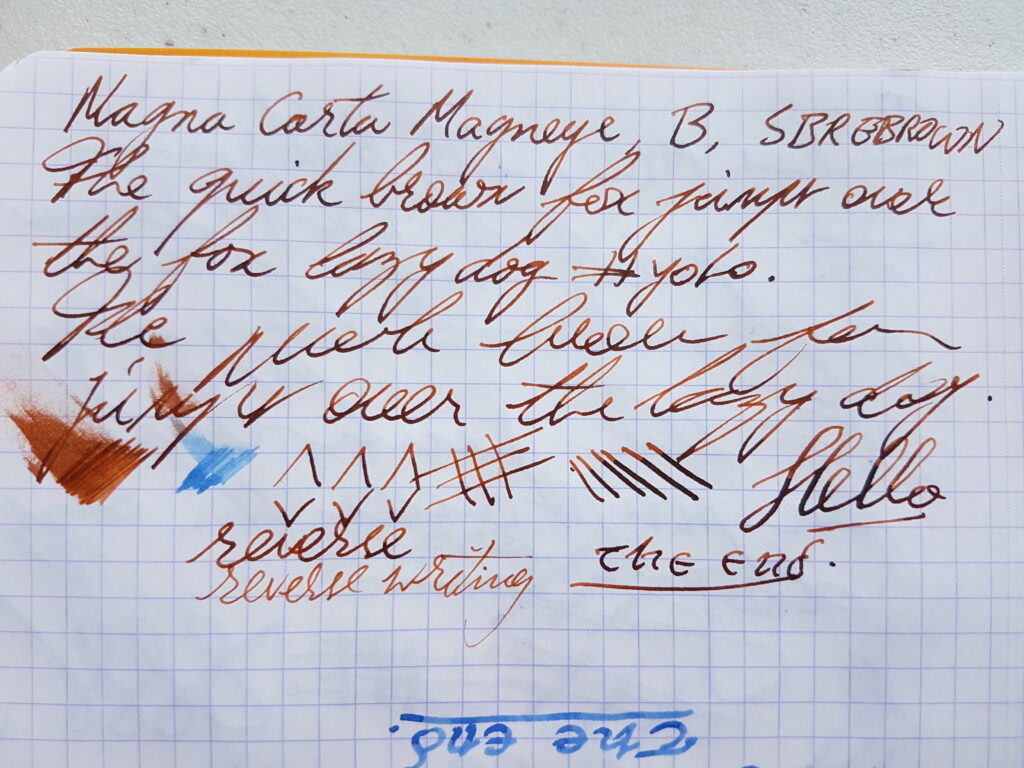 Magna Carta Magneye, B, SBREBROWN
The quick brown fox jumps over
the fox lazy dog #yolo.
The quick brown fox
jumps over the lazy dog.
Hello
reverse
reverse writing
The End.
The End.